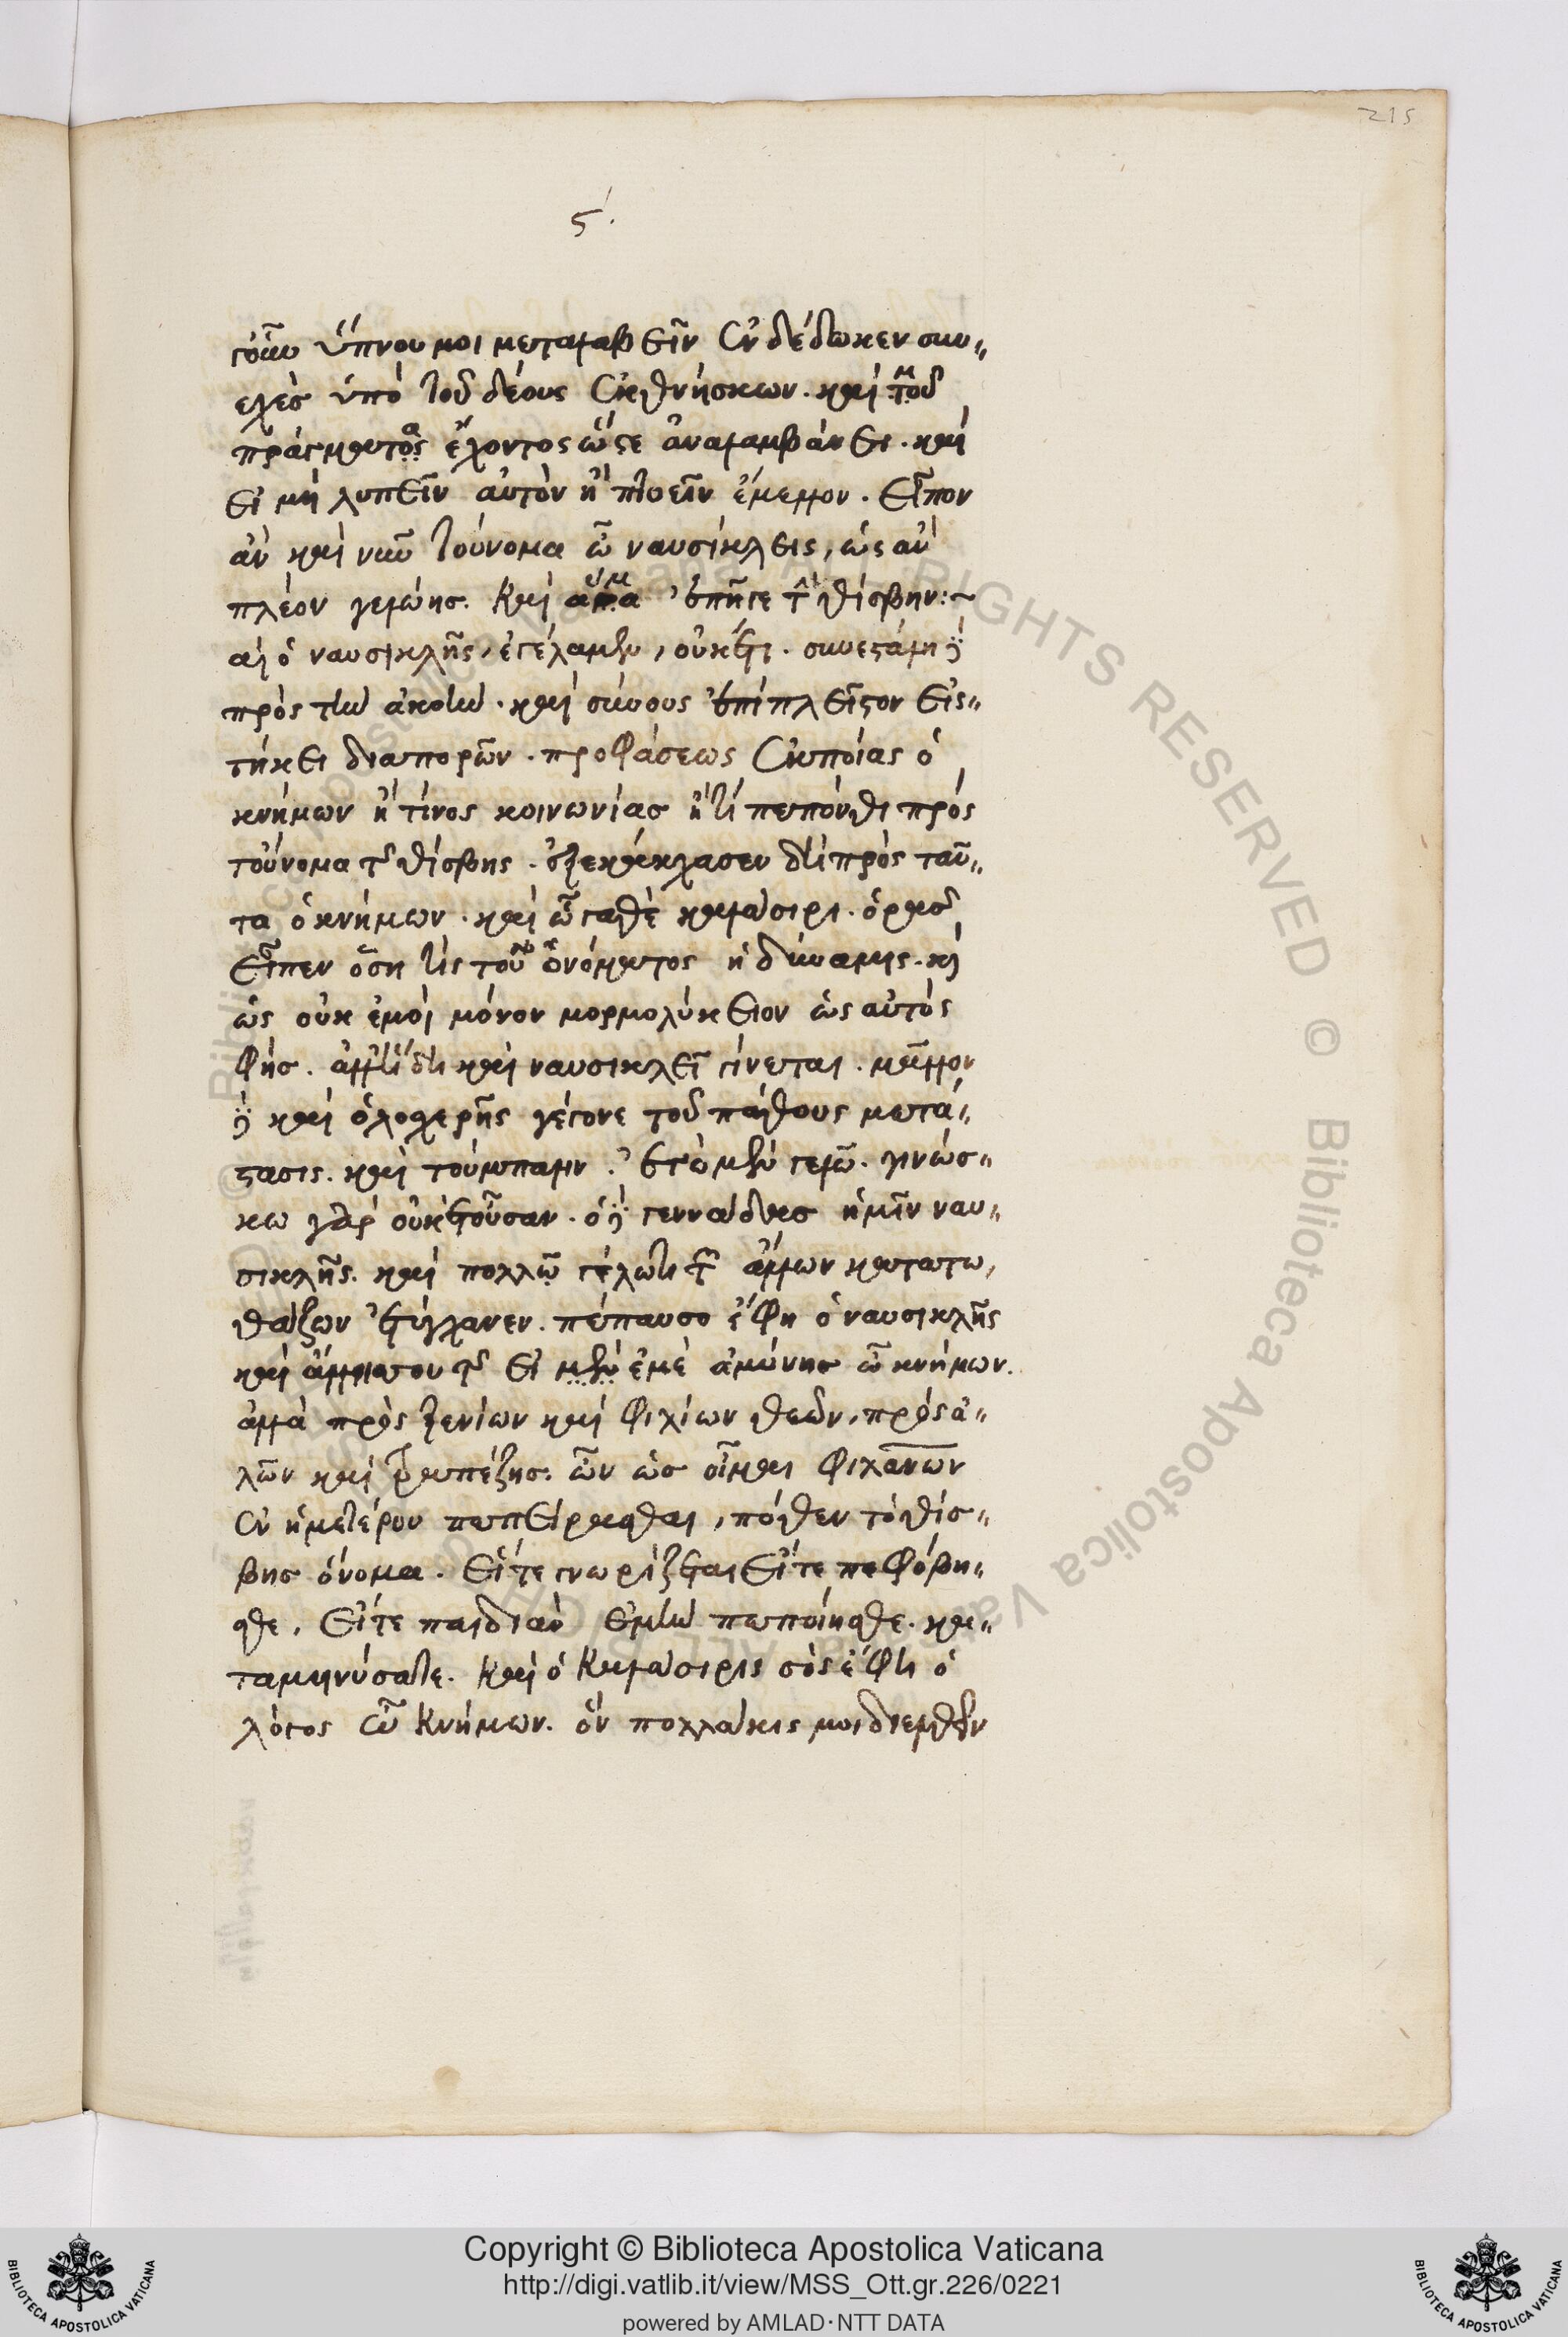 215
ϛ΄.
γοῦν ὕπνου μοι μεταλαβεῖν ἐνδέδωκεν συν-
εχὲσ ὑπὸ τοῦ δέους ἐκθνήσκων. καὶ τοῦ
πράγματος ἔχοντος ὥστε ἀναλαμβάνει. καὶ
εἰ μὴ λυπεῖν αὐτὸν ἢ πτοεῖν ἔμελλον. εἶπον
ἂν καὶ νῦν τοὔνομα ὦ ναυσίκλεις, ὡς ἂν
πλέον γελώησ. καὶ ἅμα ἐπῆγε τὴν θίσβην:~
αὐ ὁ ναυσικλῆς, ἐγέλα μὲν, οὐκέτι. συνεστάλη δὲ
πρὸς τὴν ἀκοὴν. καὶ σύννους ἐπὶ πλεῖστον εἰσ-
τήκει διαπορῶν. προφάσεως ἐκ ποίας ὁ
κνήμων ἢ τίνος κοινωνίασ ἢ τί πεπόνθει πρὸς
τοὔνομα τῆς θίσβης. ἐξεκάκχασεν ἐπὶ πρὸς ταῦ-
τα ὁ κνήμων. καὶ ὦγαθὲ καλάσιρι. ὁρᾶσ
εἶπεν ὅση τίς τοῦ ὀνόματος ἡ δύναμις. καὶ
ὡς οὐκ ἐμοὶ μόνον μορμολύκειον ὡς αὐτὸς
φήσ. ἀλλ' ἤδη καὶ ναυσικλεῖ γίνεται. μᾶλλον
δὲ καὶ ὁλοσχερῆς γέγονε τοῦ πάθους μετά-
στασις. καὶ τοὔμπαλιν. ἐγὼ μὲν γελῶ. γινώσ-
κω γὰρ οὐκέτ' οὖσαν. ὁ δὲ γενναῖος ἡμῖν ναυ-
σικλῆς. καὶ πολλῷ γέλωτι τῶν ἄλλων κατατω,
θάζων ἐτύγχανεν. πέπαυσο ἔφη ὁ ναυσικλῆς
καὶ ἄλλα του τ εἰ μὲν ἐμὲ ἀμύνησ ὦ κνήμων.
ἀλλὰ πρὸς ξενίων καὶ φιλίων θεῶν, πρὸς ἁ-
λῶν καὶ τραπέζησ. ὧν ὡσ οἶμαι φιλανων
ἐν ἡμετέρου πεπείρασθαι, πόθεν τὸ θίσ-
βησ ὄνομα. εἴτε γνωρίζεται εἴτε πεφόβη-
σθε, εἴτε παιδιὰν ἐμὴν πεποίησθε. κα-
ταμηνύσατε. καὶ ὁ Καλάσιρις σὸς ἔφη ὁ
λόγος ὦ Κνήμων. ὃν πολλάκις μοι διελθεῖν
Copyright © Biblioteca Apostolica Vaticana
http://digi.vatlib.it/view/MSS_Ott.gr.226/0221
powered by AMLAD·NTT DATA